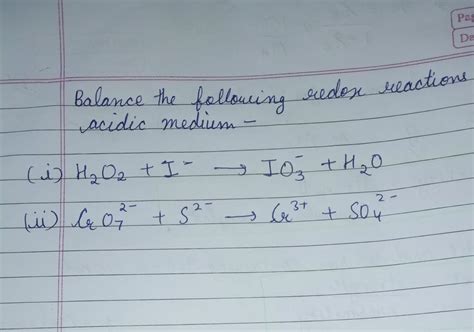 Pag
Da
Balance the following redox reactions
acidic medium –
(i) H₂O₂ + I⁻ → IO₃⁻ + H₂O
(ii) CrO₇²⁻ + S²⁻ → Cr³⁺ + SO₄²⁻